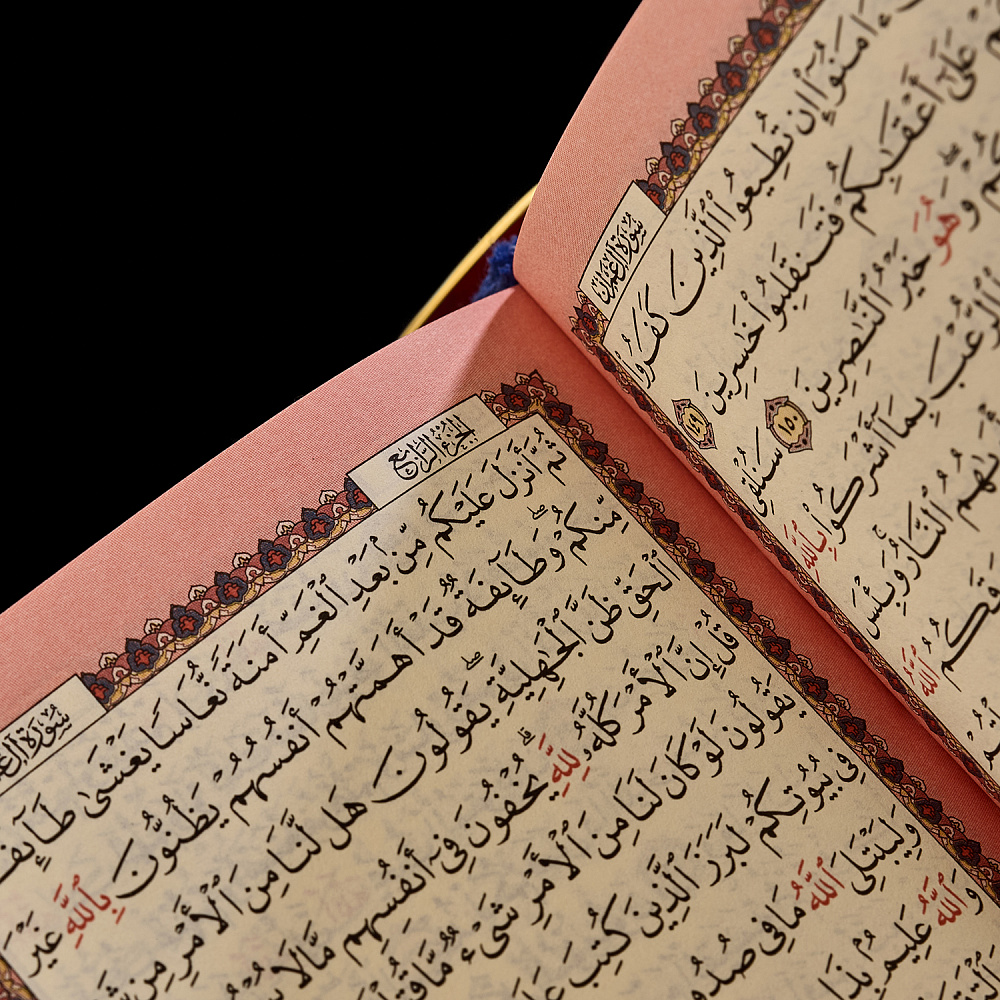 سُورَةُ آلِ عِمْرَانَ
ءَامَنُوٓا۟ إِن تُطِيعُوا۟ ٱلَّذِينَ كَفَرُوا۟
عَلَىٰٓ أَعْقَٰبِكُمْ فَتَنقَلِبُوا۟ خَٰسِرِينَ ١٤٩
وَهُوَ خَيْرُ ٱلنَّٰصِرِينَ ١٥٠ سَنُلْقِى
ٱلرُّعْبَ بِمَآ أَشْرَكُوا۟ بِٱللَّهِ
ٱلنَّارُ ۚ وَبِئْسَ
ٱللَّهُ
الجُزْءُ الرَّابِعُ
سُورَةُ آلِ
ثُمَّ أَنزَلَ عَلَيْكُم مِّنۢ بَعْدِ ٱلْغَمِّ أَمَنَةً نُّعَاسًا يَغْشَىٰ طَآئِفَ
مِّنكُمْ ۖ وَطَآئِفَةٌ قَدْ أَهَمَّتْهُمْ أَنفُسُهُمْ يَظُنُّونَ بِٱللَّهِ غَيْرَ
ٱلْحَقِّ ظَنَّ ٱلْجَٰهِلِيَّةِ ۖ يَقُولُونَ هَل لَّنَا مِنَ ٱلْأَمْرِ مِن
قُلْ إِنَّ ٱلْأَمْرَ كُلَّهُۥ لِلَّهِ ۗ يُخْفُونَ فِىٓ أَنفُسِهِم مَّا لَا
يَقُولُونَ لَوْ كَانَ لَنَا مِنَ ٱلْأَمْرِ شَىْءٌ مَّا قُتِ
فِى بُيُوتِكُمْ لَبَرَزَ ٱلَّذِينَ كُتِبَ
وَلِيَبْتَلِىَ ٱللَّهُ مَا فِى صُدُو
وَٱللَّهُ عَلِيمٌۢ بِذَا